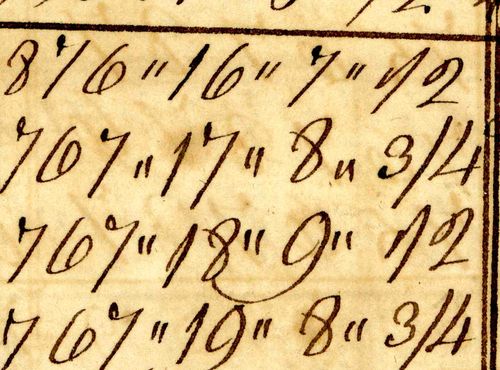 876 " 16 " 7 " 1/2
767 " 17 " 8 " 3/4
767 " 18 " 9 " 1/2
767 " 19 " 8 " 3/4